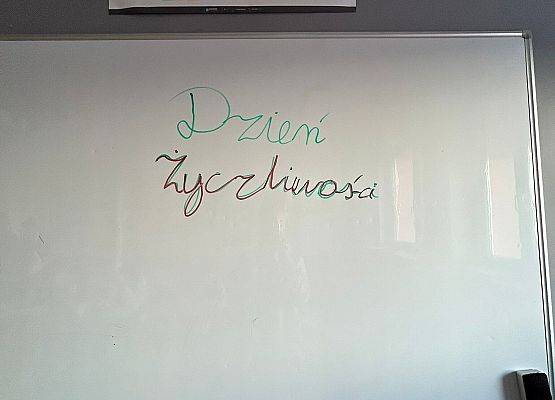 Dzień
Życzliwości